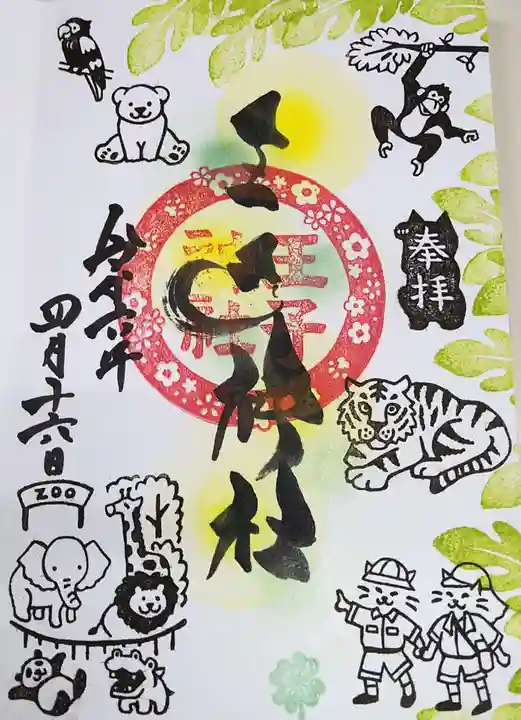 奉拝
王子神社
王子
神社
令和六年
四月十六日
ZOO